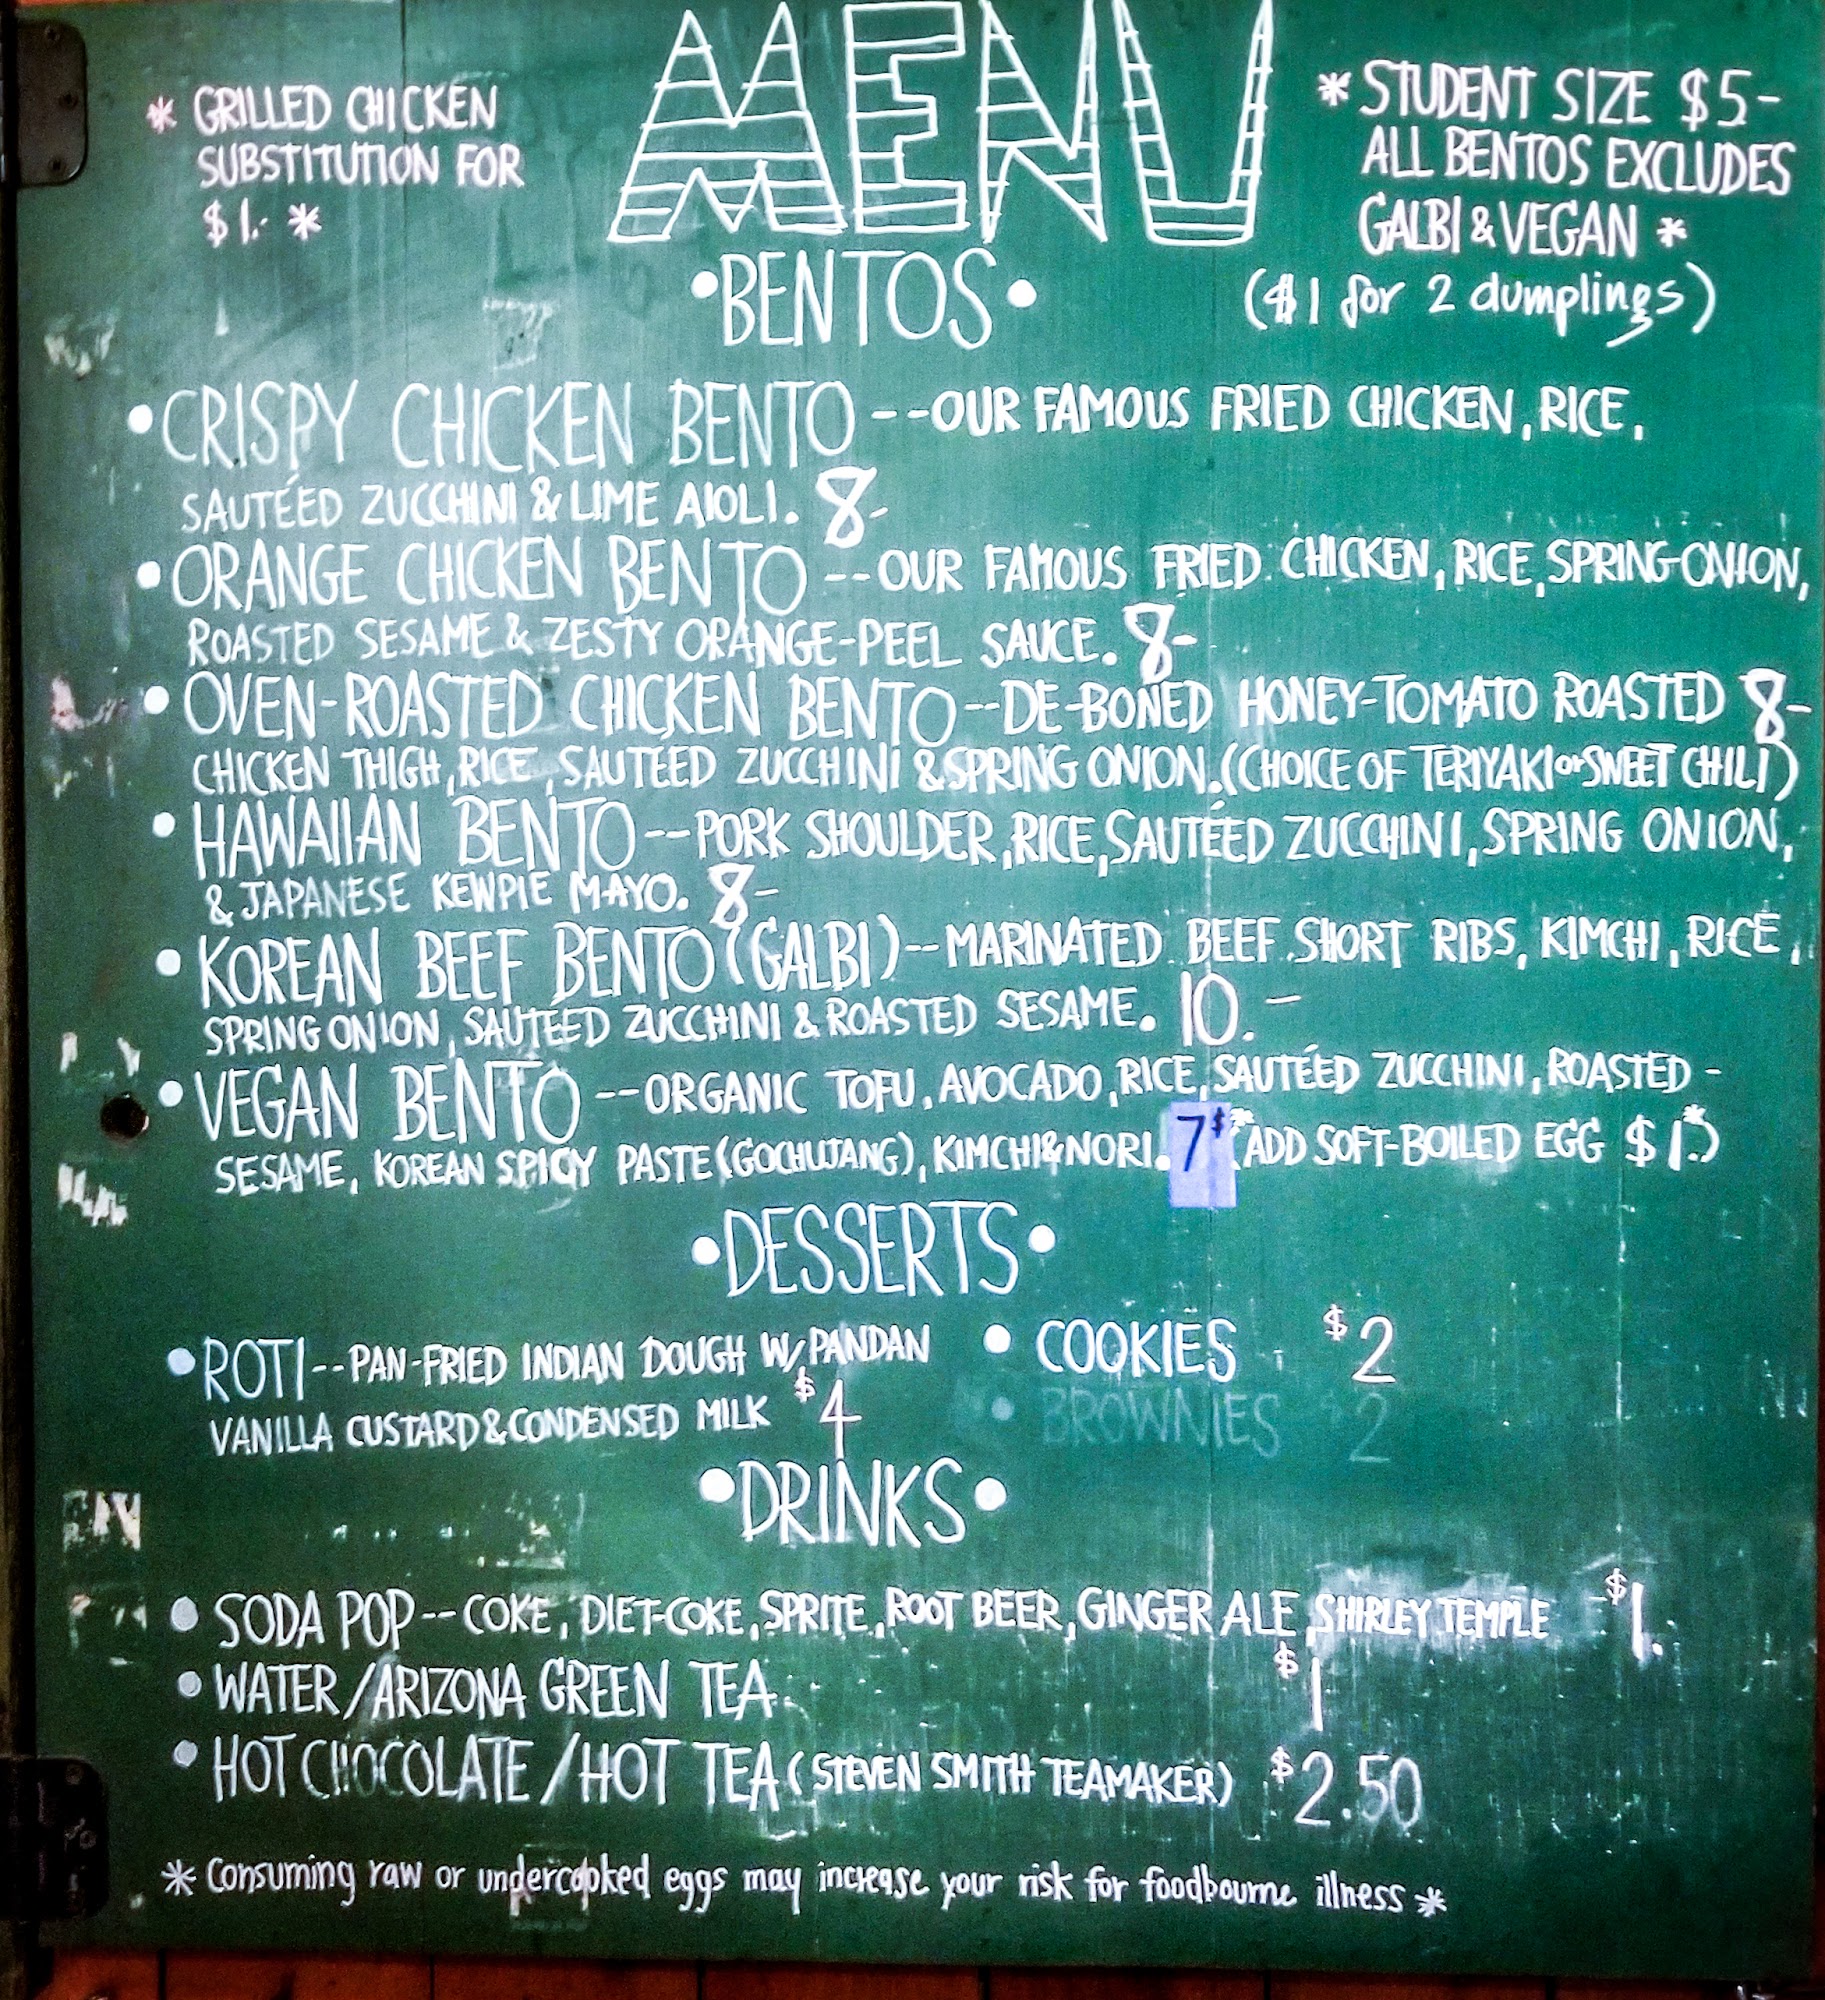 MENU
* GRILLED CHICKEN
SUBSTITUTION FOR
$1.- *
* STUDENT SIZE $5-
ALL BENTOS EXCLUDES
GALBI & VEGAN *
($1 for 2 dumplings)
•BENTOS•
•CRISPY CHICKEN BENTO--OUR FAMOUS FRIED CHICKEN, RICE,
SAUTÉED ZUCCHINI & LIME AIOLI. 8-
•ORANGE CHICKEN BENTO--OUR FAMOUS FRIED CHICKEN, RICE, SPRING-ONION,
ROASTED SESAME & ZESTY ORANGE-PEEL SAUCE. 8-
•OVEN-ROASTED CHICKEN BENTO--DE-BONED HONEY-TOMATO ROASTED 8-
CHICKEN THIGH, RICE, SAUTÉED ZUCCHINI & SPRING ONION. (CHOICE OF TERIYAKI or SWEET CHILI)
•HAWAIIAN BENTO--PORK SHOULDER, RICE, SAUTÉED ZUCCHINI, SPRING ONION,
& JAPANESE KEWPIE MAYO. 8-
•KOREAN BEEF BENTO (GALBI)--MARINATED BEEF SHORT RIBS, KIMCHI, RICE,
SPRING ONION, SAUTÉED ZUCCHINI & ROASTED SESAME. 10.-
•VEGAN BENTO--ORGANIC TOFU, AVOCADO, RICE, SAUTÉED ZUCCHINI, ROASTED-
SESAME, KOREAN SPICY PASTE (GOCHUJANG), KIMCHI & NORI. 7$ *(ADD SOFT-BOILED EGG $1.*)
•DESSERTS•
•ROTI--PAN-FRIED INDIAN DOUGH W/ PANDAN
VANILLA CUSTARD & CONDENSED MILK $4
• COOKIES $2
• BROWNIES $2
•DRINKS•
• SODA POP--COKE, DIET-COKE, SPRITE, ROOT BEER, GINGER ALE, SHIRLEY TEMPLE $1.
• WATER/ARIZONA GREEN TEA $1
• HOT CHOCOLATE/HOT TEA (STEVEN SMITH TEAMAKER) $2.50
* Consuming raw or undercooked eggs may increase your risk for foodbourne illness *